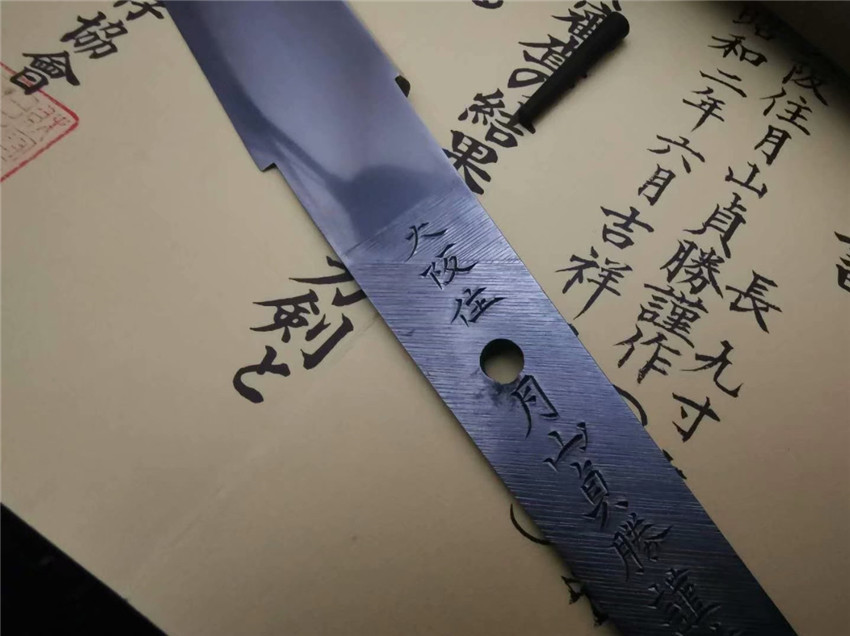 大阪住月山貞勝謹
阪住月山貞勝謹作
昭和二年六月吉祥
長九寸
審査の結果
刀剣と
存協會